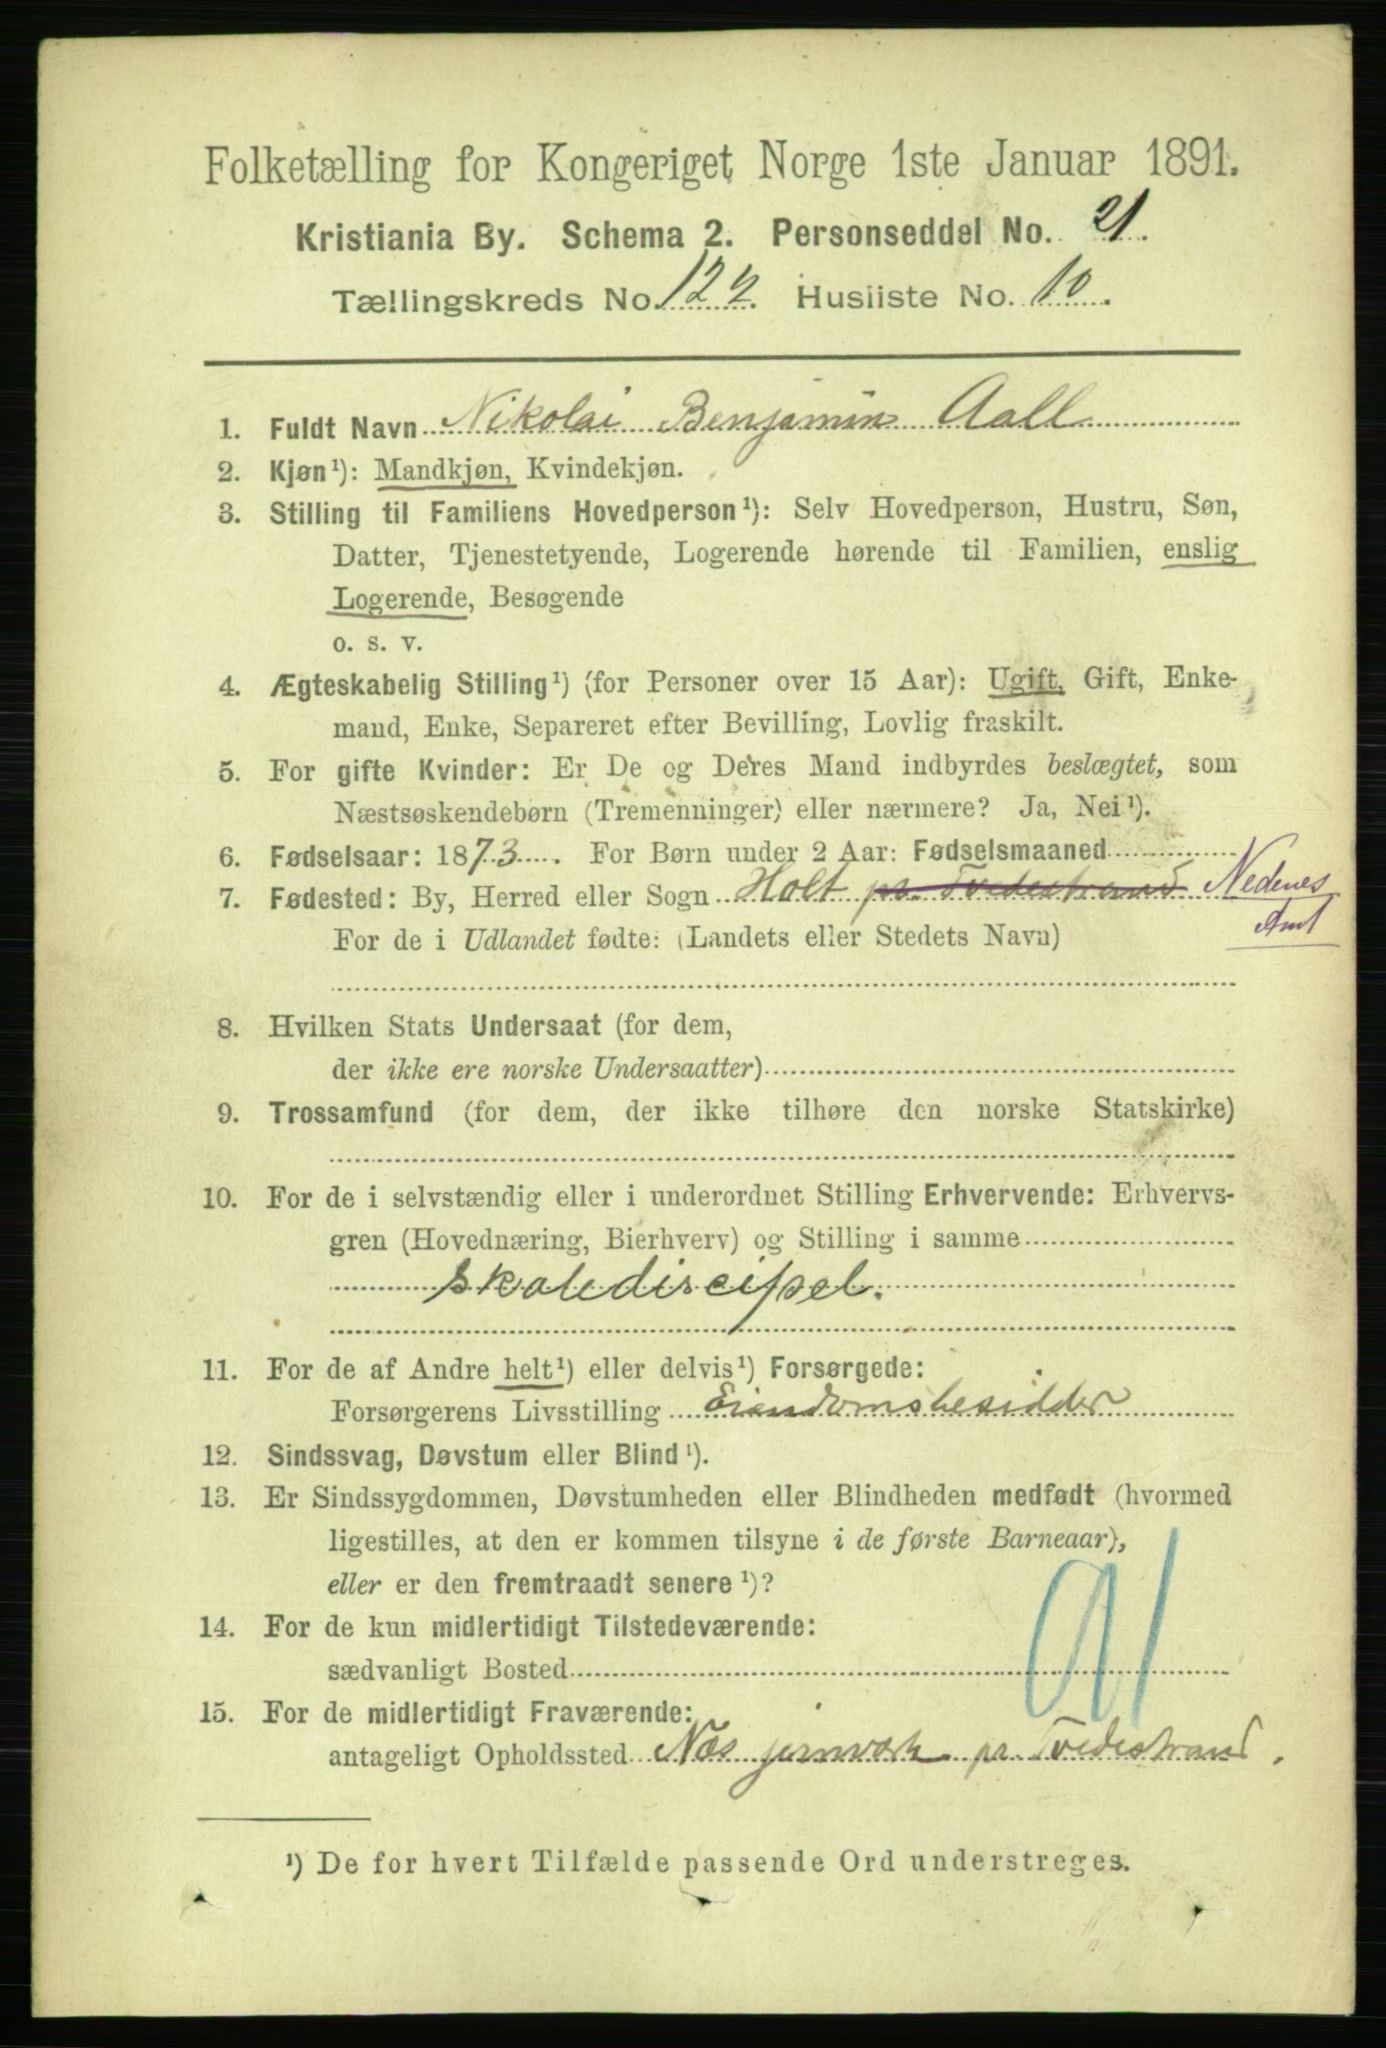 Folketælling for Kongeriget Norge 1ste Januar 1891.
Kristiania By. Schema 2. Personseddel No. 21.
Tællingskreds No. 122. Husliste No. 10.
1. Fuldt Navn Nikolai Benjamin Aall
2. Kjøn¹): Mandkjøn, Kvindekjøn.
3. Stilling til Familiens Hovedperson¹): Selv Hovedperson, Hustru, Søn,
Datter, Tjenestetyende, Logerende hørende til Familien, enslig
Logerende, Besøgende
o. s. v.
4. Ægteskabelig Stilling¹) (for Personer over 15 Aar): Ugift, Gift, Enke-
mand, Enke, Separeret efter Bevilling, Lovlig fraskilt.
5. For gifte Kvinder: Er De og Deres Mand indbyrdes beslægtet, som
Næstsøskendebørn (Tremenninger) eller nærmere? Ja, Nei¹).
6. Fødselsaar: 1873. For Børn under 2 Aar: Fødselsmaaned
7. Fødested: By, Herred eller Sogn Holt pr. Tvedestrand Nedenes
Amt
For de i Udlandet fødte: (Landets eller Stedets Navn)
8. Hvilken Stats Undersaat (for dem,
der ikke ere norske Undersaatter)
9. Trossamfund (for dem, der ikke tilhøre den norske Statskirke)
10. For de i selvstændig eller i underordnet Stilling Erhvervende: Erhvervs-
gren (Hovednæring, Bierhverv) og Stilling i samme
Skolediscipel.
11. For de af Andre helt¹) eller delvis¹) Forsørgede:
Forsørgerens Livsstilling Eiendomsbesidder
12. Sindssvag, Døvstum eller Blind¹).
13. Er Sindssygdommen, Døvstumheden eller Blindheden medfødt (hvormed
ligestilles, at den er kommen tilsyne i de første Barneaar),
eller er den fremtraadt senere¹)?
14. For de kun midlertidigt Tilstedeværende:
sædvanligt Bosted
15. For de midlertidigt Fraværende:
antageligt Opholdssted Næs jernværk pr. Tvedestrand.
¹) De for hvert Tilfælde passende Ord understreges.